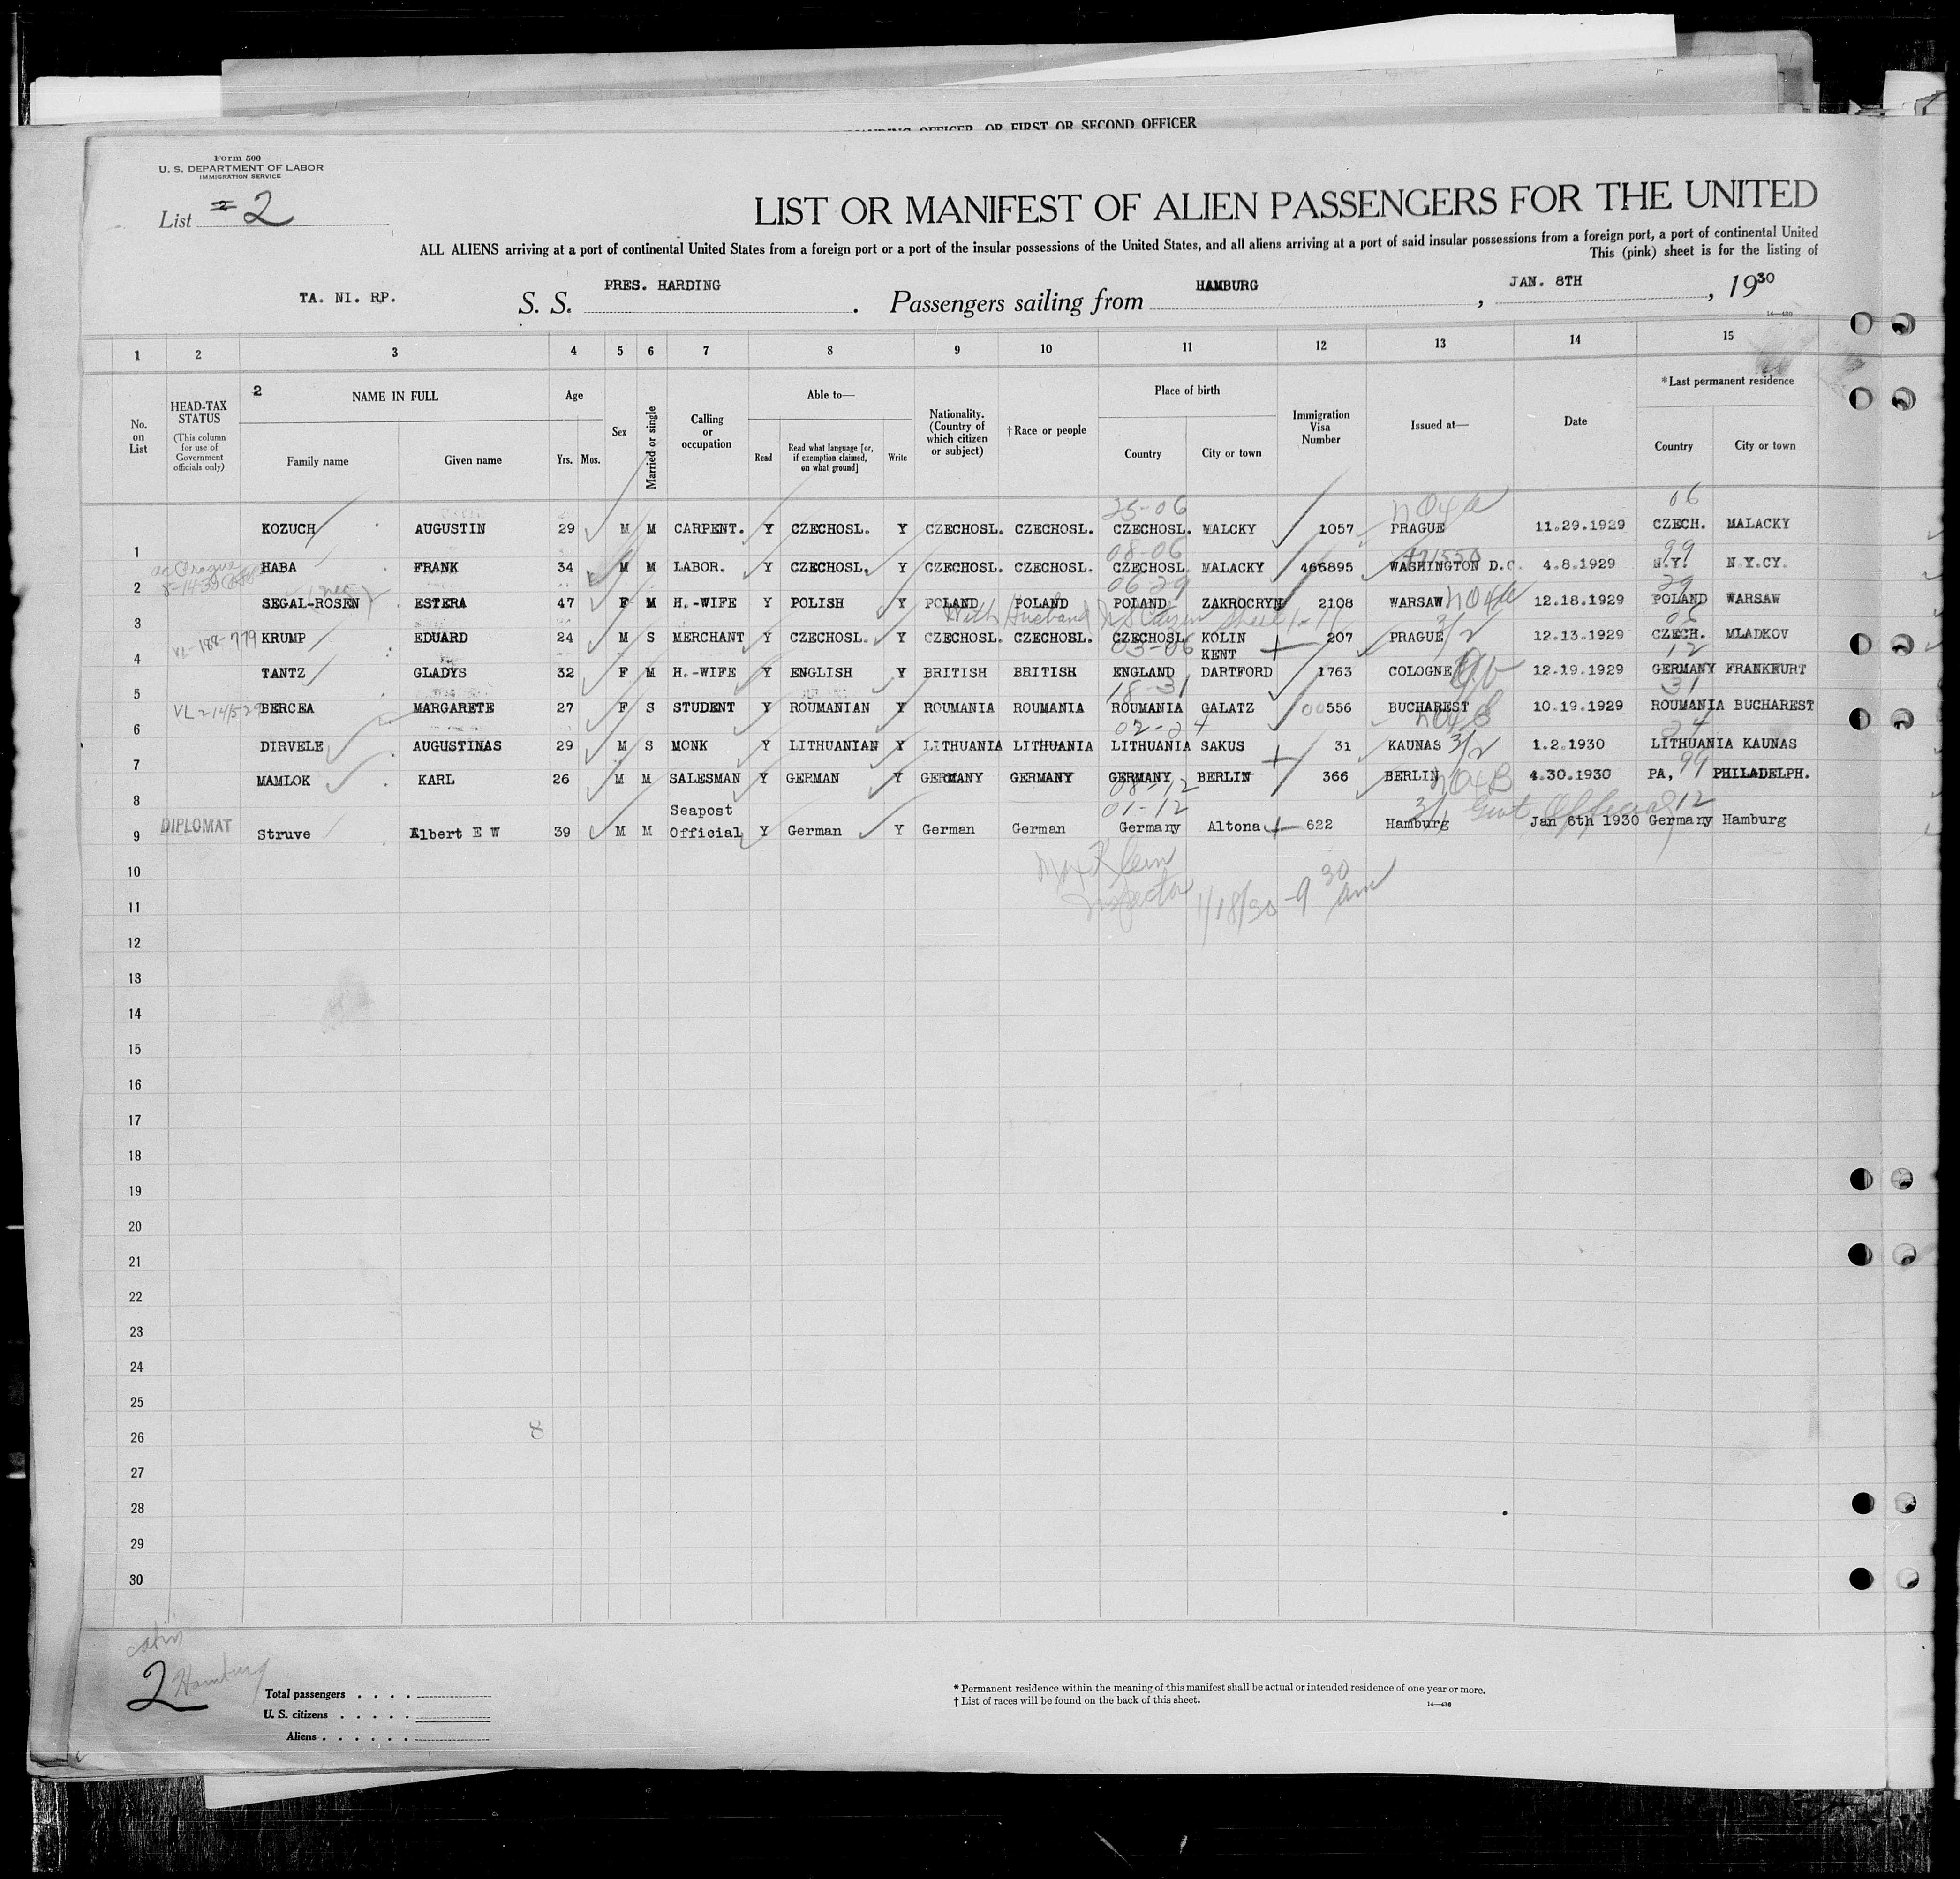 COMMANDING OFFICER, OR FIRST OR SECOND OFFICER
Form 500
U. S. DEPARTMENT OF LABOR
IMMIGRATION SERVICE
List 2 2
LIST OR MANIFEST OF ALIEN PASSENGERS FOR THE UNITED
ALL ALIENS arriving at a port of continental United States from a foreign port or a port of the insular possessions of the United States, and all aliens arriving at a port of said insular possessions from a foreign port, a port of continental United
This (pink) sheet is for the listing of
TA. NI. RP. S. S. PRES. HARDING. Passengers sailing from HAMBURG, JAN. 8TH, 1930
14—430
1 2 3 4 5 6 7 8 9 10 11 12 13 14 15
No. on List
HEAD-TAX STATUS
(This column for use of Government officials only)
2 NAME IN FULL
Family name Given name
Age
Yrs. Mos.
Sex
Married or single
Calling or occupation
Able to—
Read Read what language [or, if exemption claimed, on what ground] Write
Nationality. (Country of which citizen or subject)
† Race or people
Place of birth
Country City or town
Immigration Visa Number
Issued at—
Date
* Last permanent residence
Country City or town
25-06 06
KOZUCH AUGUSTIN 29 M M CARPENT. Y CZECHOSL. Y CZECHOSL. CZECHOSL. CZECHOSL. MALCKY 1057 PRAGUE 11.29.1929 CZECH. MALACKY
1
08-06 99
HABA FRANK 34 M M LABOR. Y CZECHOSL. Y CZECHOSL. CZECHOSL. CZECHOSL. MALACKY 466895 WASHINGTON D.C. 4.8.1929 N.Y. N.Y.CY.
2
06-29 29
SEGAL-ROSEN ESTERA 47 F M H.-WIFE Y POLISH Y POLAND POLAND POLAND ZAKROCRYM 2108 WARSAW 12.18.1929 POLAND WARSAW
3
With Husband U S Citizen Sheet
VL-188-779 KRUMP EDUARD 24 M S MERCHANT Y CZECHOSL. Y CZECHOSL. CZECHOSL. CZECHOSL. KOLIN 207 PRAGUE 3/2 12.13.1929 CZECH. MLADKOV
4
03-06 KENT 12
TANTZ GLADYS 32 F M H.-WIFE Y ENGLISH Y BRITISH BRITISH ENGLAND DARTFORD 1763 COLOGNE 12.19.1929 GERMANY FRANKFURT
5
18-31 31
VL 214/529 BERCEA MARGARETE 27 F S STUDENT Y ROUMANIAN Y ROUMANIA ROUMANIA ROUMANIA GALATZ 00556 BUCHAREST 10.19.1929 ROUMANIA BUCHAREST
6
02-24 24
DIRVELE AUGUSTINAS 29 M S MONK Y LITHUANIAN Y LITHUANIA LITHUANIA LITHUANIA SAKUS 31 KAUNAS 3/2 1.2.1930 LITHUANIA KAUNAS
7
MAMLOK KARL 26 M M SALESMAN Y GERMAN Y GERMANY GERMANY GERMANY BERLIN 366 BERLIN 4.30.1930 PA, 99 PHILADELPH.
8
08-12
01-12 Govt Official 12
DIPLOMAT Struve Albert E W 39 M M Seapost Official Y German Y German German Germany Altona 622 Hamburg Jan 6th 1930 Germany Hamburg
9
Max Klein
Inspector 1/18/30 - 9 30 am
10
11
12
13
14
15
16
17
18
19
20
21
22
23
24
25
26
8
27
28
29
30
cabin
2 Hamburg
Total passengers . . . .
U. S. citizens . . . . .
Aliens . . . . . .
* Permanent residence within the meaning of this manifest shall be actual or intended residence of one year or more.
† List of races will be found on the back of this sheet.
14—430